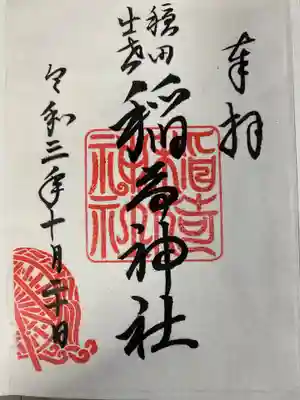 奉拝
穏田
出世
稲荷神社
令和三年十月二十日
稲荷
神社